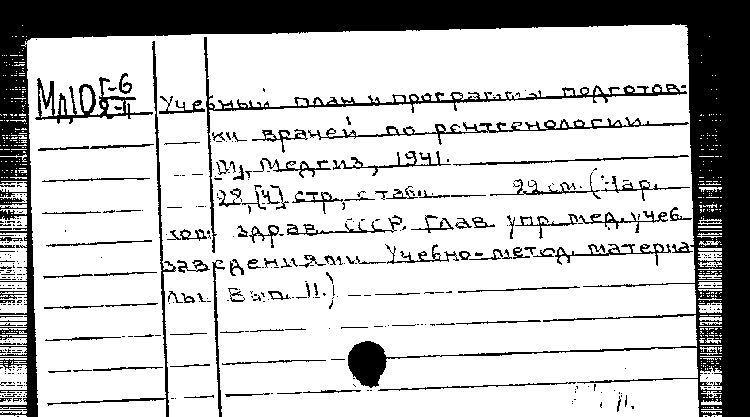 МД10 Г-6/2-11
Учебный план и программы подготов-
ки врачей по рентгенологии.
М., Медгиз, 1941.
28, [4] стр., с табл. 22 см. (Нар.
ком. здрав. СССР. Глав. упр. мед. учеб.
заведениями. Учебно-метод. материа-
лы. Вып. 11.)